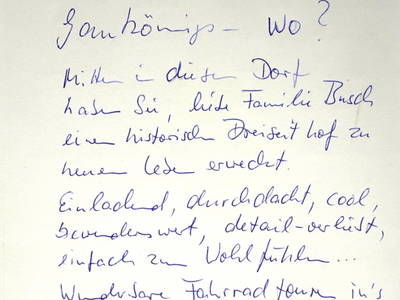 Gamkönigs – Wo?
Mitten in diesem Dorf
haben Sie, liebe Familie Busch
einen historischen Dreiseithof zu
neuem Leben erweckt.
Einladend, durchdacht, cool,
bewundernswert, detail-verliebt,
einfach zum Wohlfühlen...
Wunderbare Fahrradtouren in's